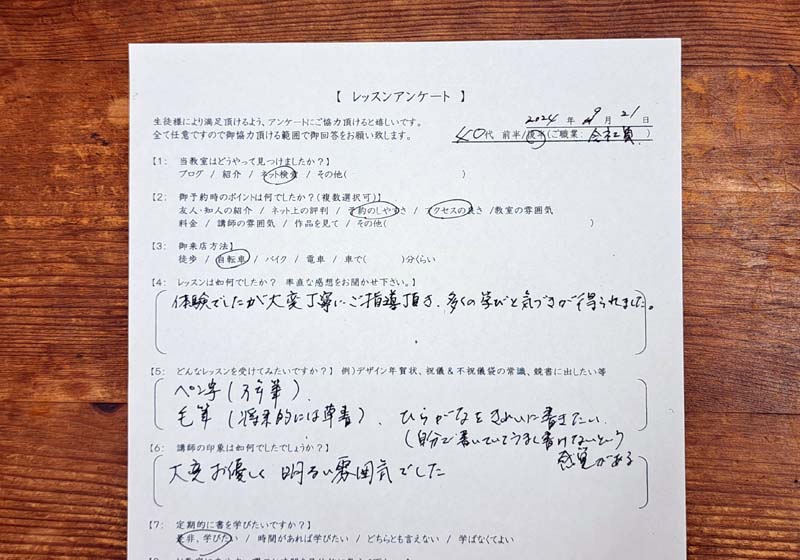 【 レッスンアンケート 】
生徒様により満足頂けるよう、アンケートにご協力頂けると嬉しいです。
2024 年 9 月 21 日
全て任意ですので御協力頂ける範囲で御回答をお願い致します。
40代 前半/後半(ご職業: 会社員 )
【1: 当教室はどうやって見つけましたか?】
ブログ / 紹介 / ネット検索 / その他( )
【2: 御予約時のポイントは何でしたか?(複数選択可)】
友人・知人の紹介 / ネット上の評判 / 予約のしやすさ / アクセスの良さ /教室の雰囲気
料金 / 講師の雰囲気 / 作品を見て / その他( )
【3: 御来店方法】
徒歩 / 自転車 / バイク / 電車 / 車で( )分くらい
【4: レッスンは如何でしたか? 率直な感想をお聞かせ下さい。】
体験でしたが大変丁寧にご指導頂き、多くの学びと気づきが得られました。
【5: どんなレッスンを受けてみたいですか? 例)デザイン年賀状、祝儀&不祝儀袋の常識、競書に出したい等
ペン字(万年筆)、
毛筆(将来的には草書)、ひらがなをきれいに書きたい。
(自分で書いていてうまく書けないという
感覚がある)
【6: 講師の印象は如何でしたでしょうか?】
大変お優しく明るい雰囲気でした
【7: 定期的に書を学びたいですか?】
是非、学びたい / 時間があれば学びたい / どちらとも言えない / 学ばなくてよい